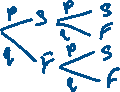 P S P S
q F
q F P S
q F